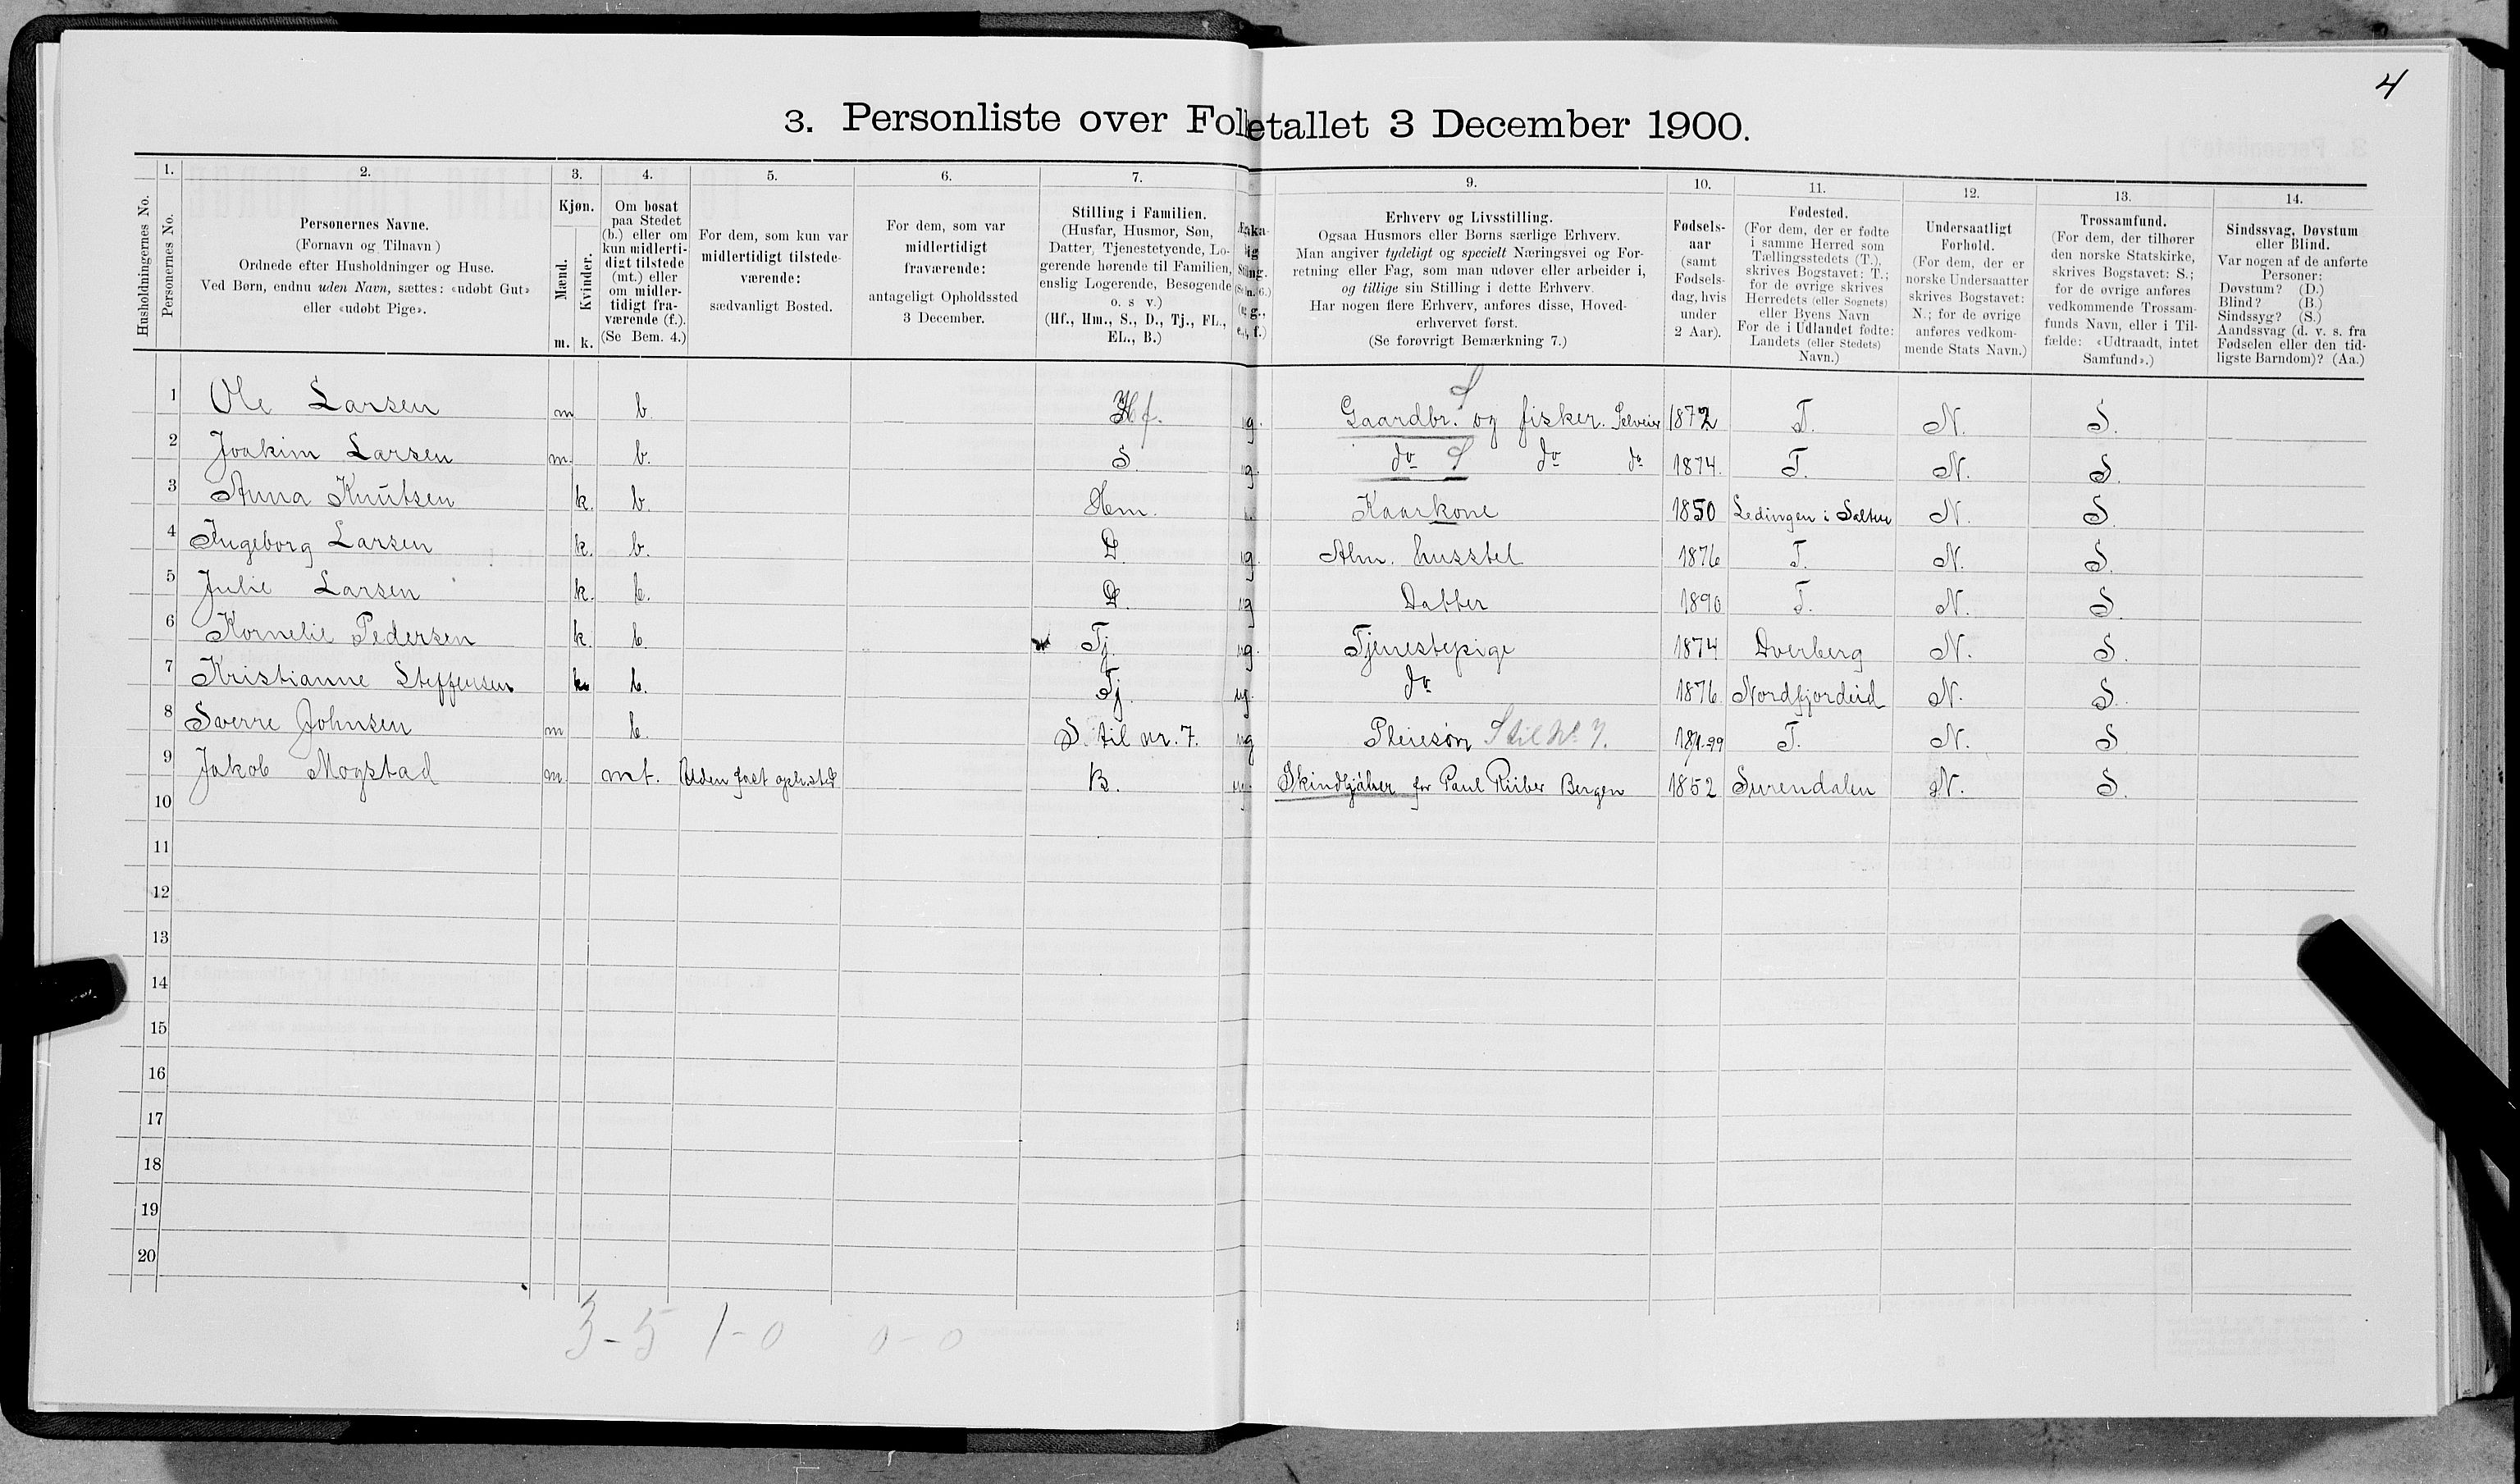 4
3. Personliste over Folketallet 3 December 1900.
Husholdningernes No.
1.
Personernes No.
2.
Personernes Navne.
(Fornavn og Tilnavn)
Ordnede efter Husholdninger og Huse.
Ved Børn, endnu uden Navn, sættes: «udøbt Gut»
eller «udøbt Pige».
3.
Kjøn.
Mænd.
Kvinder.
m. k.
4.
Om bosat
paa Stedet
(b.) eller om
kun midlerti-
digt tilstede
(mt.) eller
om midler-
tidigt fra-
værende (f.).
(Se Bem. 4.)
5.
For dem, som kun var
midlertidigt tilstede-
værende:
sædvanligt Bosted.
6.
For dem, som var
midlertidigt
fraværende:
antageligt Opholdssted
3 December.
7.
Stilling i Familien.
(Husfar, Husmor, Søn,
Datter, Tjenestetyende, Lo-
gerende hørende til Familien,
enslig Logerende, Besøgende
o. s v.)
(Hf., Hm., S., D., Tj., FL.,
EL., B.)
9.
Erhverv og Livsstilling.
Ogsaa Husmors eller Børns særlige Erhverv.
Man angiver tydeligt og specielt Næringsvei og For-
retning eller Fag, som man udøver eller arbeider i,
og tillige sin Stilling i dette Erhverv.
Har nogen flere Erhverv, anføres disse, Hoved-
erhvervet først.
(Se forøvrigt Bemærkning 7.)
10.
Fødsels-
aar
(samt
Fødsels-
dag, hvis
under
2 Aar).
11.
Fødested.
(For dem, der er fødte
i samme Herred som
Tællingsstedets (T.),
skrives Bogstavet: T.;
for de øvrige skrives
Herredets (eller Sognets)
eller Byens Navn
For de i Udlandet fødte:
Landets (eller Stedets)
Navn.)
12.
Undersaatligt
Forhold.
(For dem, der er
norske Undersaatter
skrives Bogstavet:
N.; for de øvrige
anføres vedkom-
mende Stats Navn.)
13.
Trossamfund.
(For dem, der tilhører
den norske Statskirke,
skrives Bogstavet: S.;
for de øvrige anføres
vedkommende Trossam-
funds Navn, eller i Til-
fælde: «Udtraadt, intet
Samfund».)
14.
Sindssvag, Døvstum
eller Blind.
Var nogen af de anførte
Personer:
Døvstum? (D.)
Blind? (B.)
Sindssyg? (S.)
Aandssvag (d. v. s. fra
Fødselen eller den tid-
ligste Barndom)? (Aa.)
1 Ole Larsen m b. Hf. g. Gaardbr. S og fisker. Selveier 1872 T. N. S.
2 Joakim Larsen m. b. S. g. do S do do 1874. T. N. S.
3 Anna Knutsen k. b. Hm. Kaarkone 1850 Ledingen i Salten N. S.
4 Ingeborg Larsen k. b. D. g. Alm. husstel 1876 T. N. S.
5 Julie Larsen k. b. D. ug Datter 1890 T. N. S.
6 Kornelie Pedersen k. b. Tj. ug. Tjenestepige 1874 Dverberg N. S.
7 Kristianne Steffensen k b. Tj. ug. do 1876 Nordfjordeid N. S.
8 Sverre Johnsen m b. S. til nr. 7. ug Pleiesøn S til No 7. T. N. S
9 Jakob Mogstad m mt. Uden fast oph.sted B. ug. Skindkjøber for Paul Riiber Bergen 1852 Surendalen N. S.
10
11
12
13
14
15
16
17
18
19
20
3-5 1-0 0-0